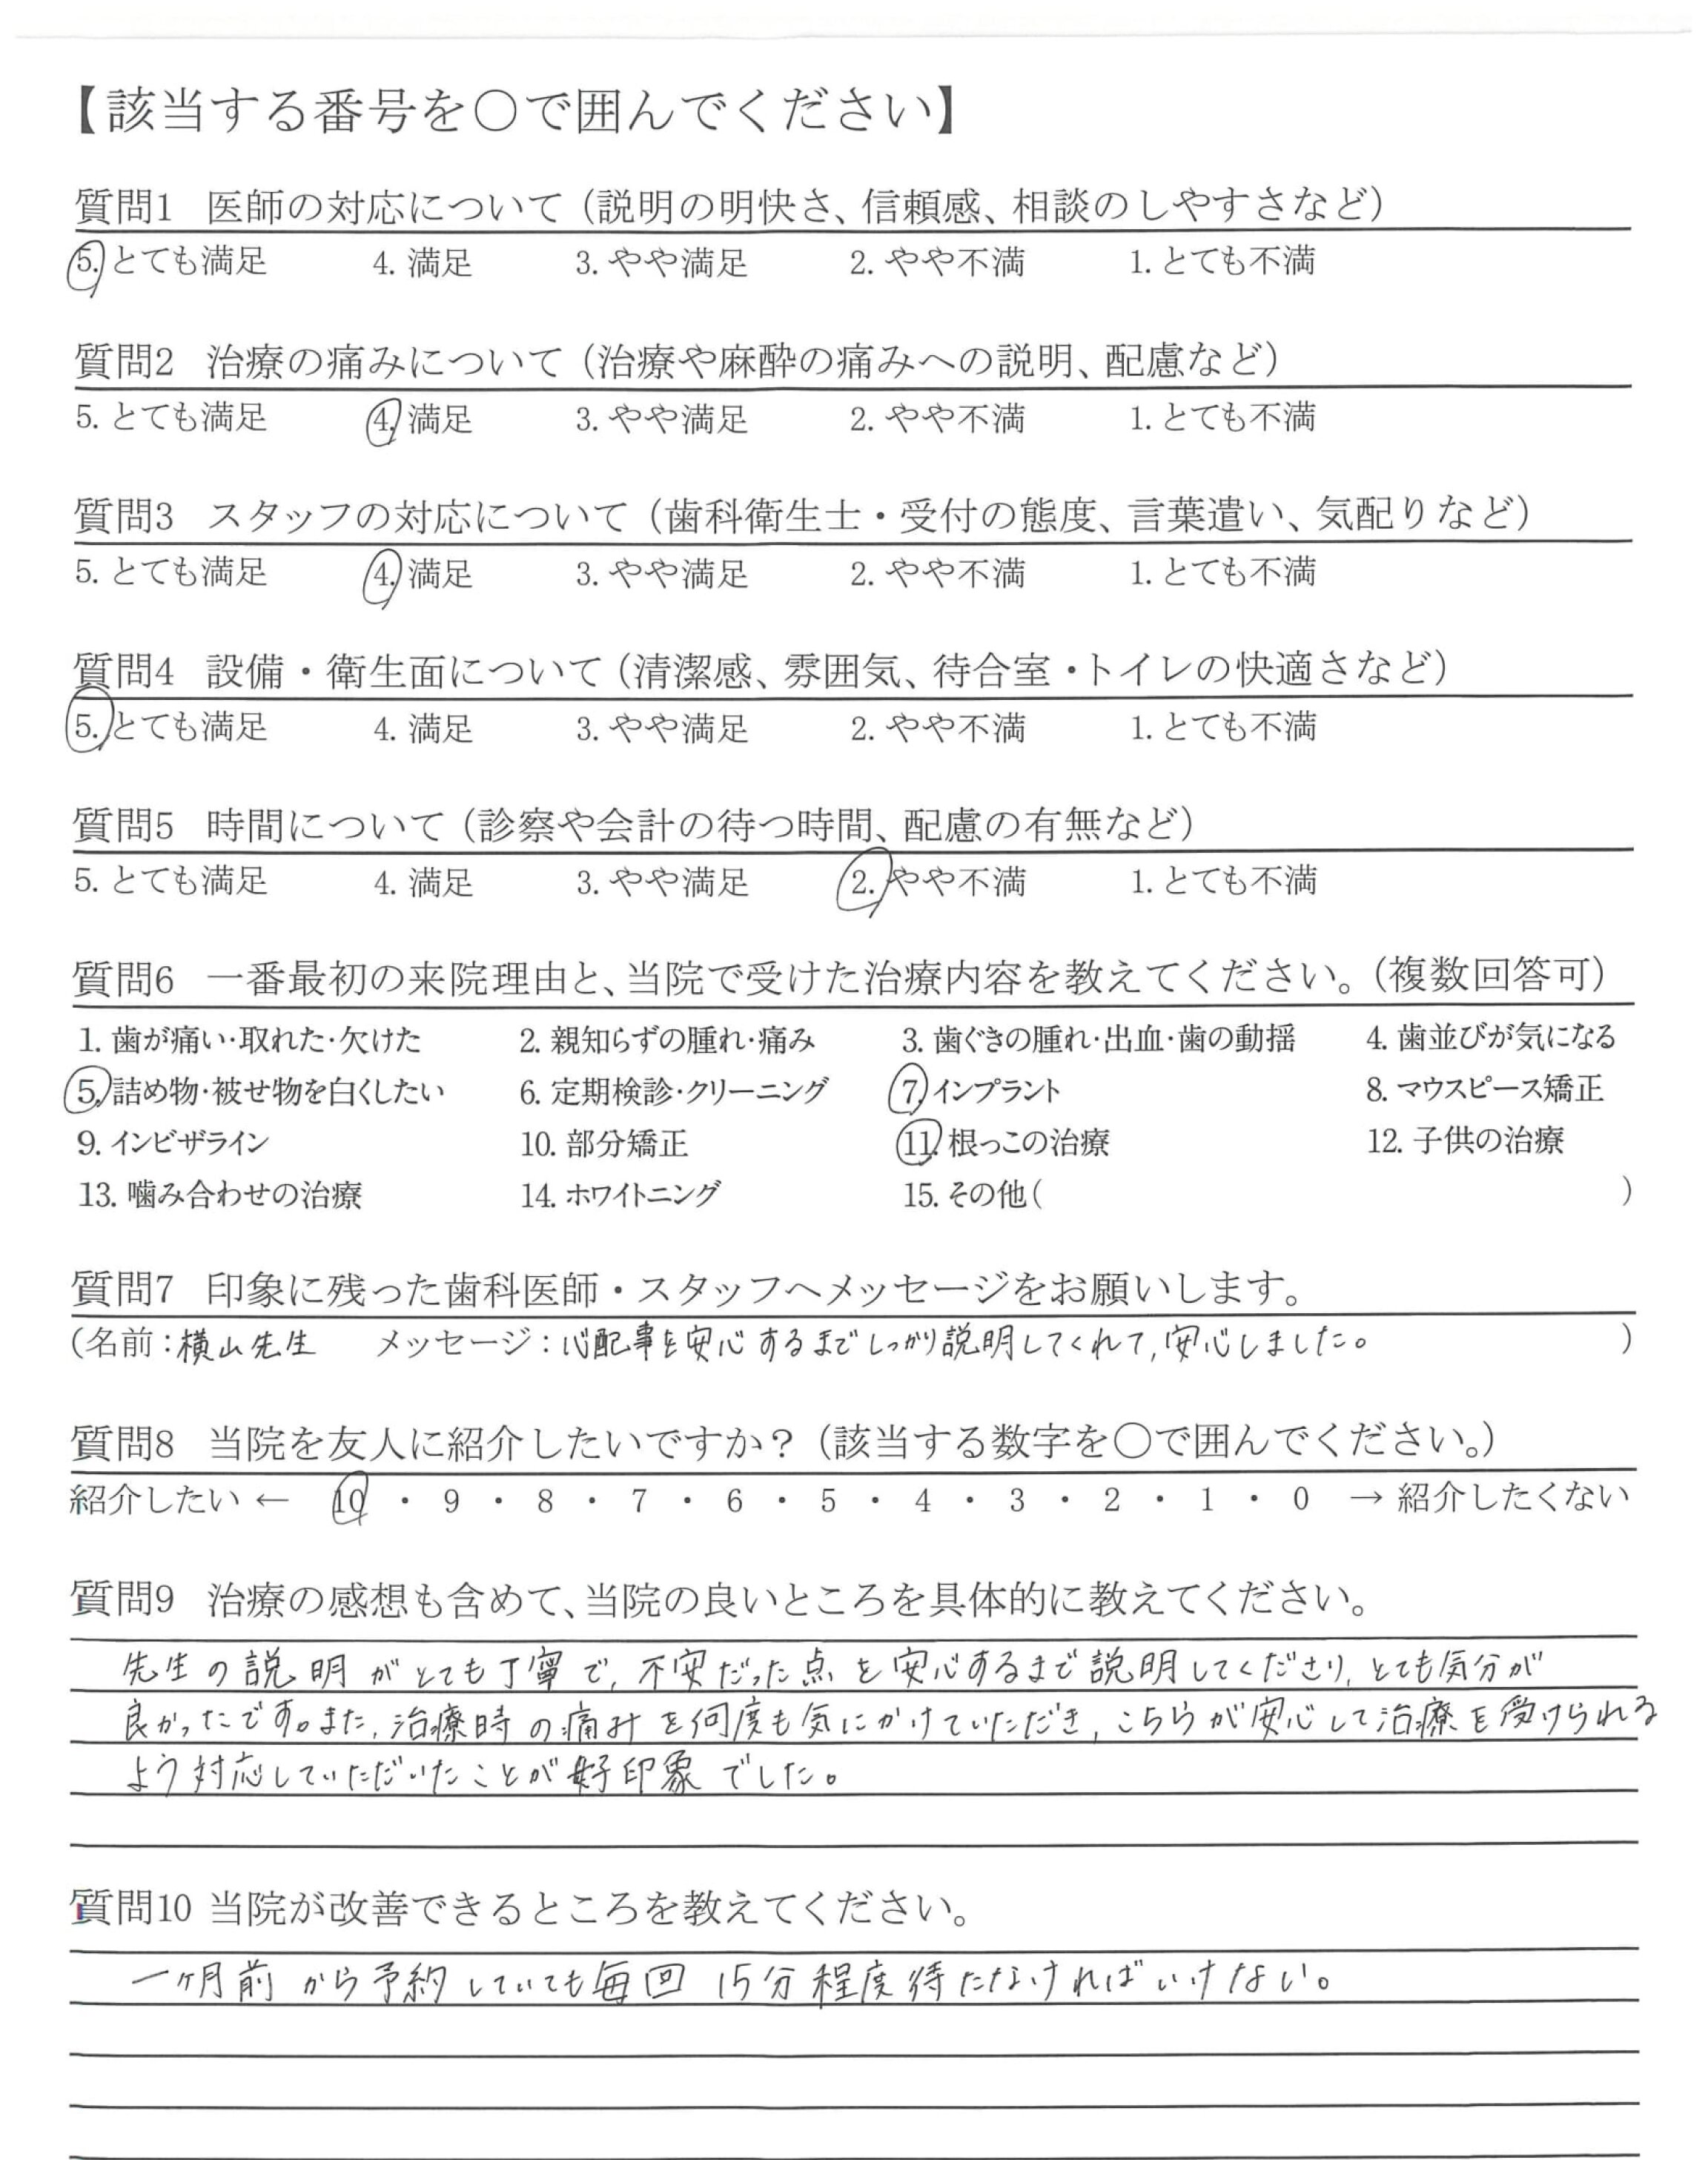 【該当する番号を○で囲んでください】
質問1 医師の対応について（説明の明快さ、信頼感、相談のしやすさなど）
5. とても満足 4. 満足 3. やや満足 2. やや不満 1. とても不満
質問2 治療の痛みについて（治療や麻酔の痛みへの説明、配慮など）
5. とても満足 4. 満足 3. やや満足 2. やや不満 1. とても不満
質問3 スタッフの対応について（歯科衛生士・受付の態度、言葉遣い、気配りなど）
5. とても満足 4. 満足 3. やや満足 2. やや不満 1. とても不満
質問4 設備・衛生面について（清潔感、雰囲気、待合室・トイレの快適さなど）
5. とても満足 4. 満足 3. やや満足 2. やや不満 1. とても不満
質問5 時間について（診察や会計の待つ時間、配慮の有無など）
5. とても満足 4. 満足 3. やや満足 2. やや不満 1. とても不満
質問6 一番最初の来院理由と、当院で受けた治療内容を教えてください。（複数回答可）
1. 歯が痛い・取れた・欠けた 2. 親知らずの腫れ・痛み 3. 歯ぐきの腫れ・出血・歯の動揺 4. 歯並びが気になる
5. 詰め物・被せ物を白くしたい 6. 定期検診・クリーニング 7. インプラント 8. マウスピース矯正
9. インビザライン 10. 部分矯正 11. 根っこの治療 12. 子供の治療
13. 噛み合わせの治療 14. ホワイトニング 15. その他（ ）
質問7 印象に残った歯科医師・スタッフへメッセージをお願いします。
（名前：横山先生 メッセージ：心配事を安心するまでしっかり説明してくれて、安心しました。 ）
質問8 当院を友人に紹介したいですか？（該当する数字を○で囲んでください。）
紹介したい ← 10 ・ 9 ・ 8 ・ 7 ・ 6 ・ 5 ・ 4 ・ 3 ・ 2 ・ 1 ・ 0 → 紹介したくない
質問9 治療の感想も含めて、当院の良いところを具体的に教えてください。
先生の説明がとても丁寧で、不安だった点を安心するまで説明してくださり、とても気分が
良かったです。また、治療時の痛みを何度も気にかけていただき、こちらが安心して治療を受けられる
よう対応していただいたことが好印象でした。
質問10 当院が改善できるところを教えてください。
一ヶ月前から予約していても毎回15分程度待たなければいけない。